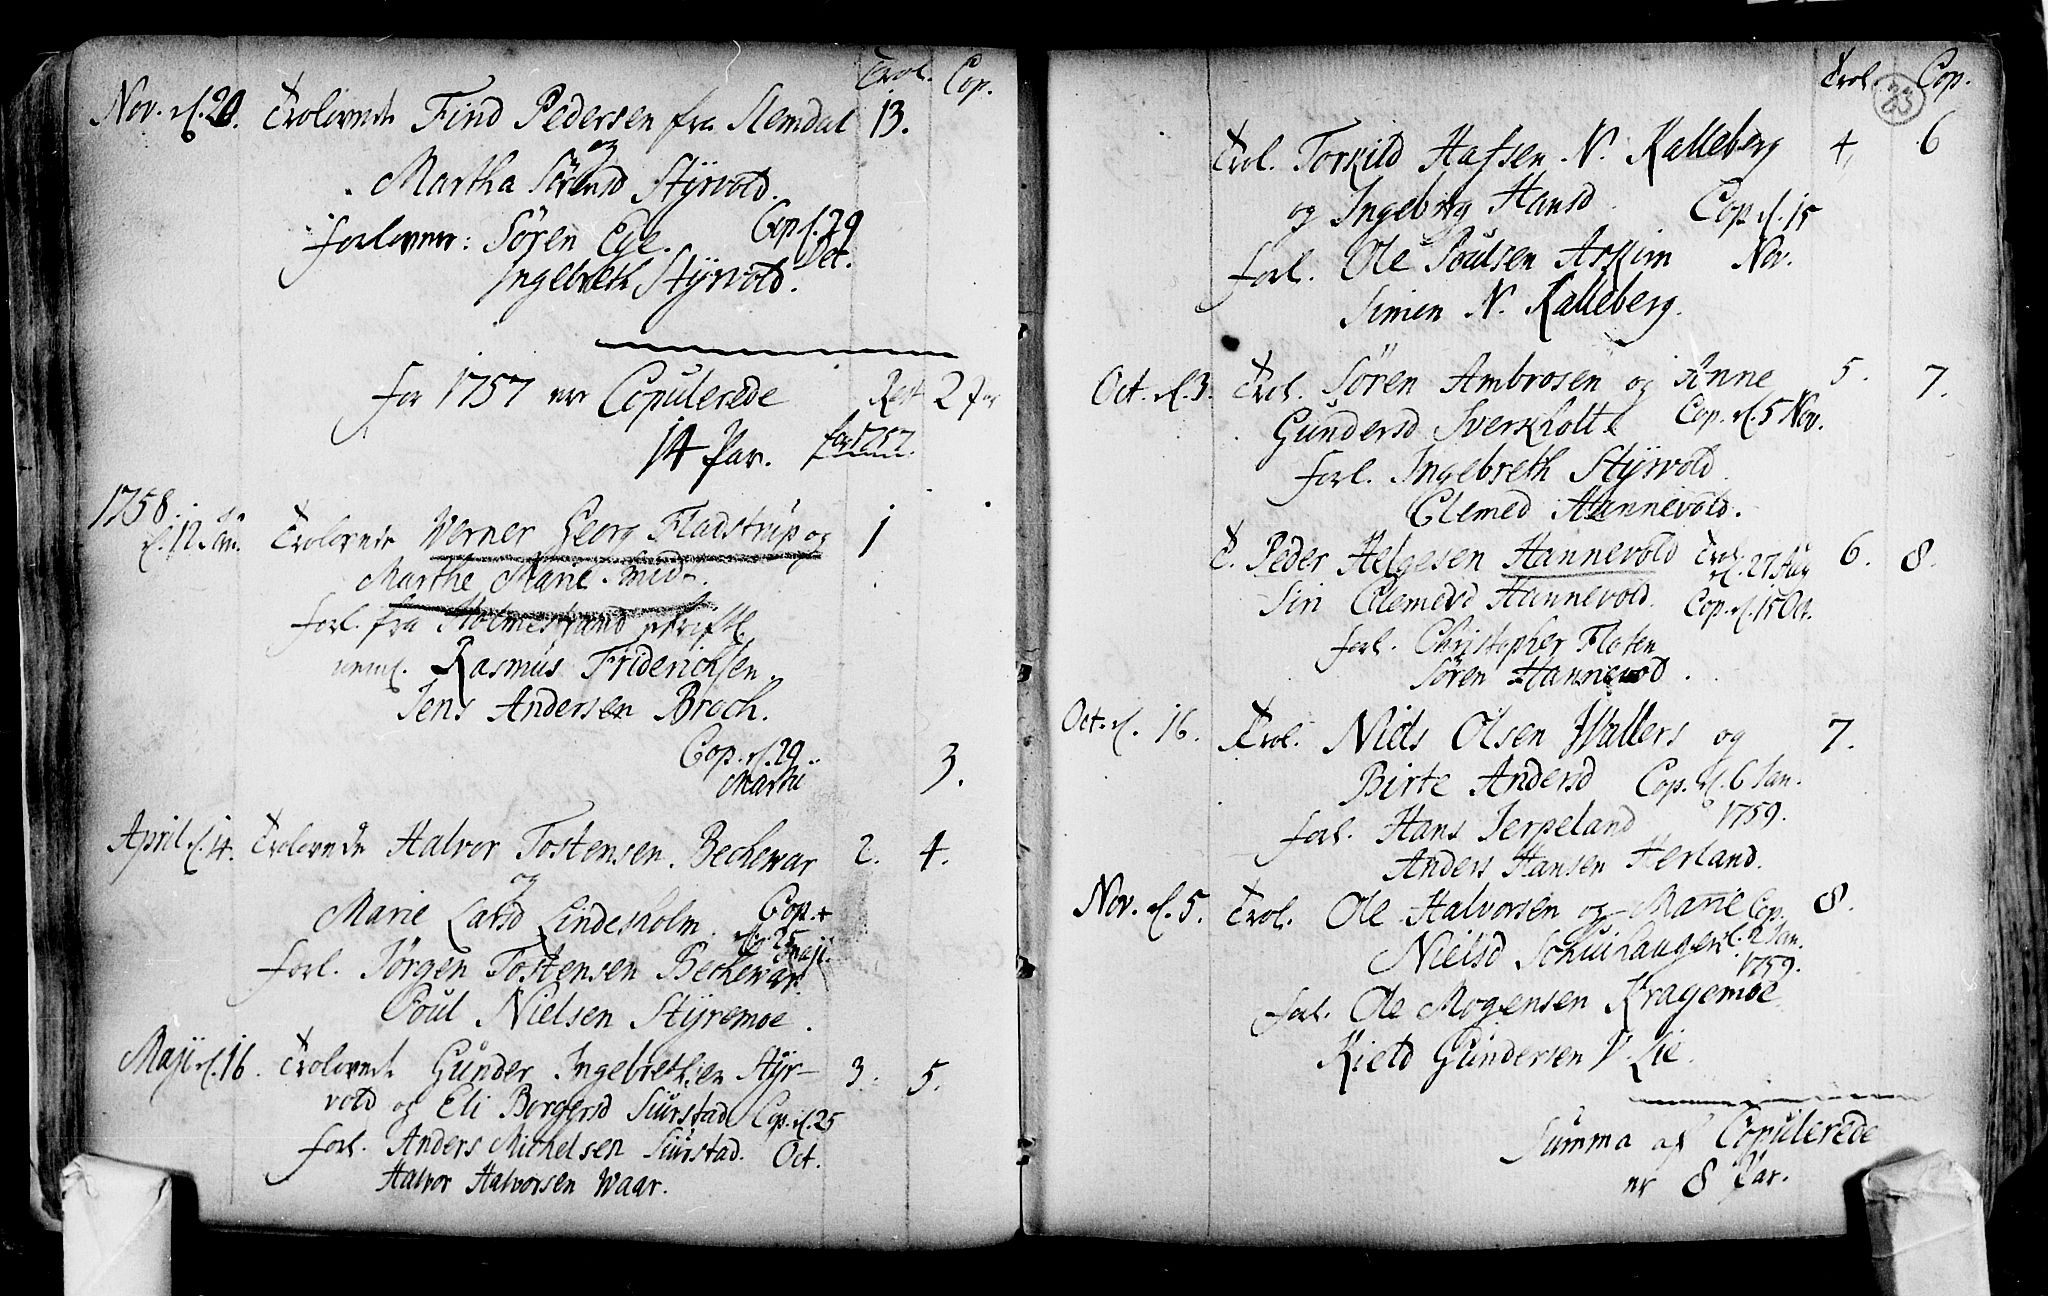 Trol. Cop.
Nov. d. 20. Trolovede Find Pedersen fra Slemdal 13.
og
Martha Sörensd Styrvold.
forlover: Sören Ege. Cop. d. 29
Ingebreth Styrvold. Oct.
for 1757 ere Copulerede Rest 2 par
14 Par. for 1757.
1758.
d. 12 Jan. Trolovede Werner Georg Fladstrup og 1
Marthe Marie Smidt.
forl. fra Holmestrand skriftl.
neml. Rasmus Friderichsen.
Jens Andersen Broch.
Cop. d. 29.
Martii 3.
April d. 14. Trolovede Halvor Tostensen Bechewar 2. 4.
og
Marie Larsd Lindesholm. Cop.
d. 25 Maji.
forl. Jörgen Tostensen Bechewar
Poul Nielsen Styremoe.
Maji d. 16. Trolovede Gunder Ingebrethsen Styr- 3. 5.
vold og Eli Borgersd Siurstad Cop. d. 25
forl. Anders Michelsen Siurstad. Oct.
Halvor Halvorsen Waar.
Trol. Cop.
83
Trol. Torkild Hafsen N. Kalleberg 4, 6
og Ingeborg Hansd. Cop. d. 15
forl. Ole Poulsen Askim Nov.
Simen N. Kalleberg.
Oct. d. 3. Trol. Sören Ambrosen og Anne 5. 7.
Gundersd Sverkholtt Cop. d. 5 Nov.
forl. Ingebreth Styrvold
Clemed Hannevold.
T. Peder Helgesen Hannevold Trol. d. 27 Aug 6. 8.
Siri Clemedsd Hannevold. Cop. d. 15 Oct.
forl. Christopher Floten
Sören Hannevold.
Oct. d. 16. Trol. Niels Olsen Wallers og 7.
Birte Andersd Cop. d. 6 Jan.
forl. Hans Jerpeland 1759.
Anders Hansen Herland.
Nov. d. 5. Trol. Ole Halvorsen og Marie Cop. 8.
Nielsd Schuihaugen d. 2 Jan.
1759.
forl. Ole Mogensen Kragemoe
Kield Gundersen V. Lie.
Summa af Copulerede
er 8 Par.